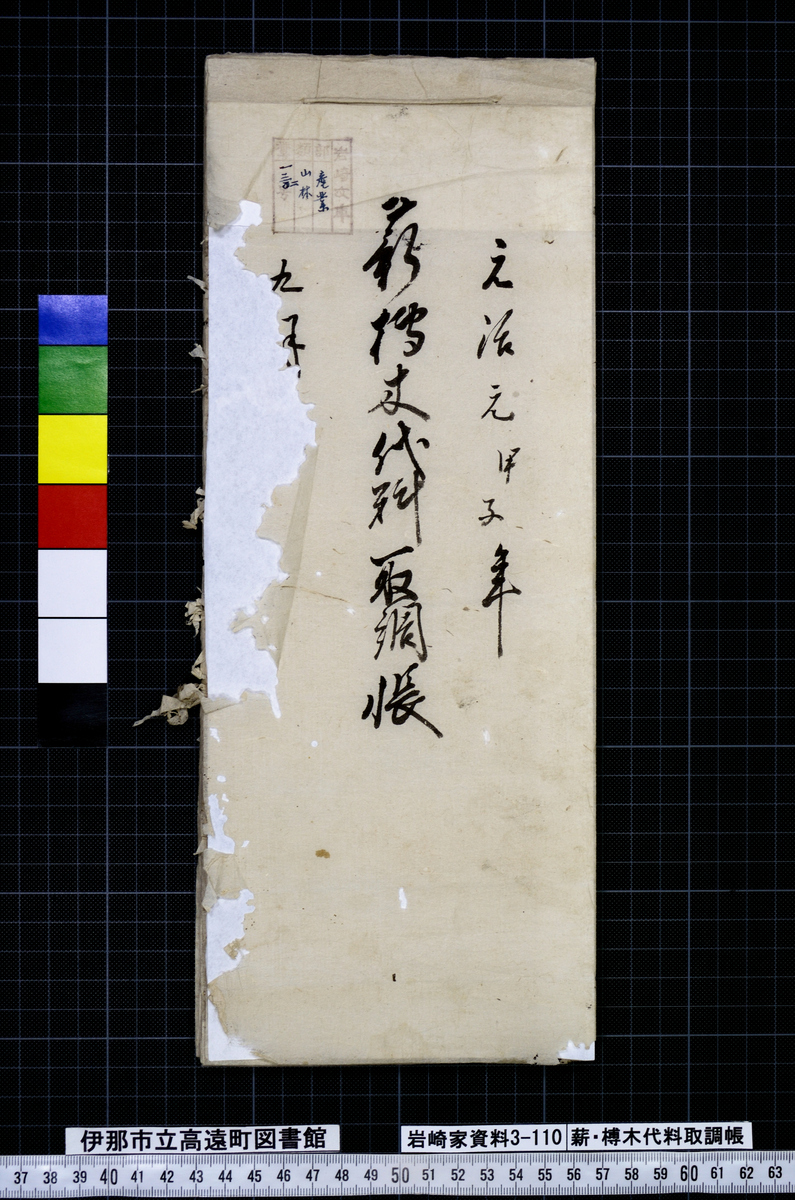 元治元甲子年
薪榑木代料取調帳
九月
岩崎文庫
産業
山林
伊那市立高遠町図書館
岩崎家資料3-110
薪・榑木代料取調帳
37 38 39 40 41 42 43 44 45 46 47 48 49 50 51 52 53 54 55 56 57 58 59 60 61 62 63